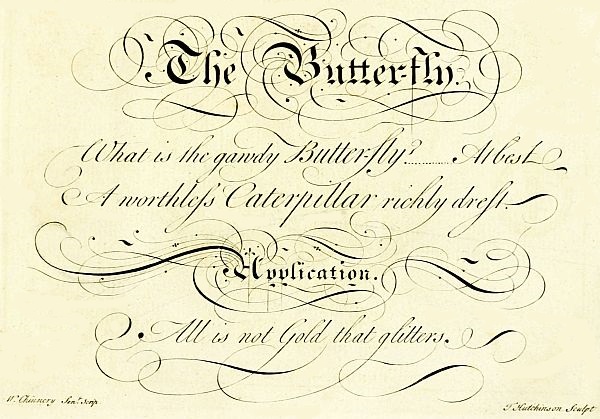 The Butter-fly.
What is the gawdy Butter-fly? ........ At best
A worthleſs Caterpillar richly dreſt.
Application.
All is not Gold that glitters.
W. Chinnery Senr. Scrip. T. Hutchinson Sculpt